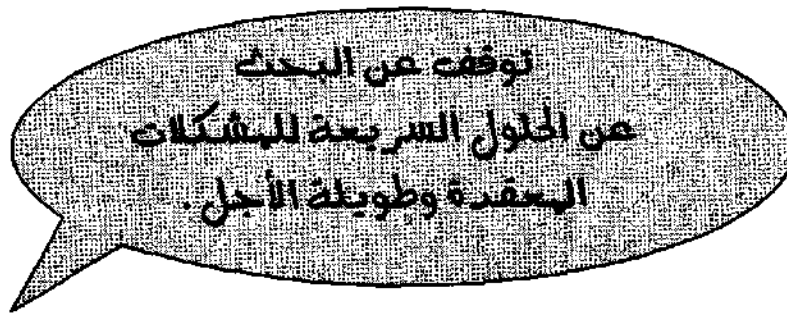 توقف عن البحث
عن الحلول السريعة للمشكلات
المعقدة وطويلة الأجل .